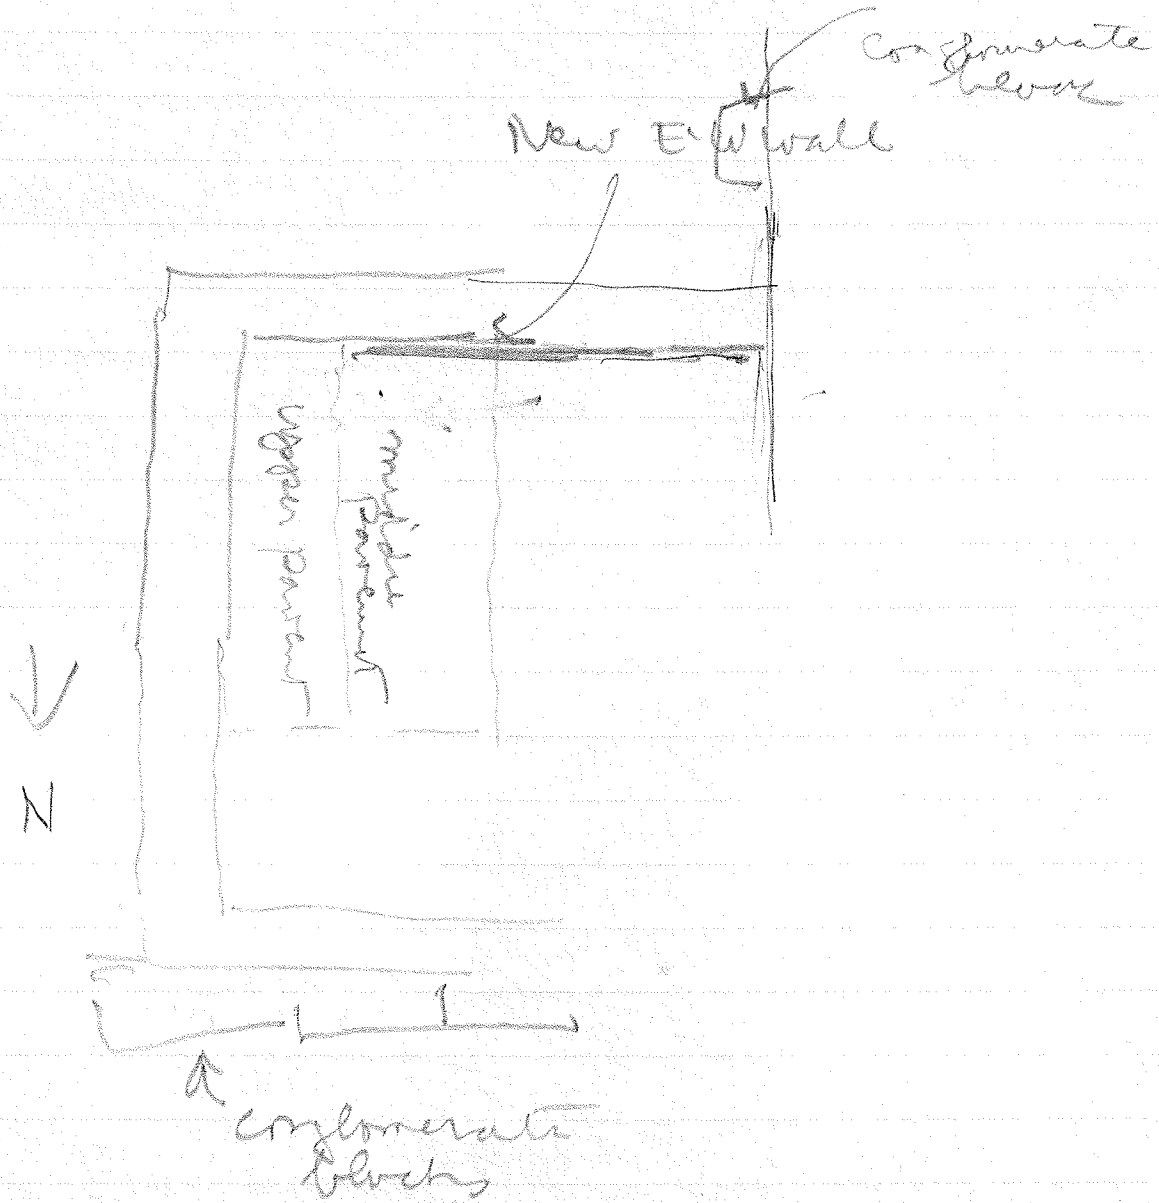 Conglomerate
block
New E-W wall
Upper pavement
middle
pavement
N
conglomerate
blocks